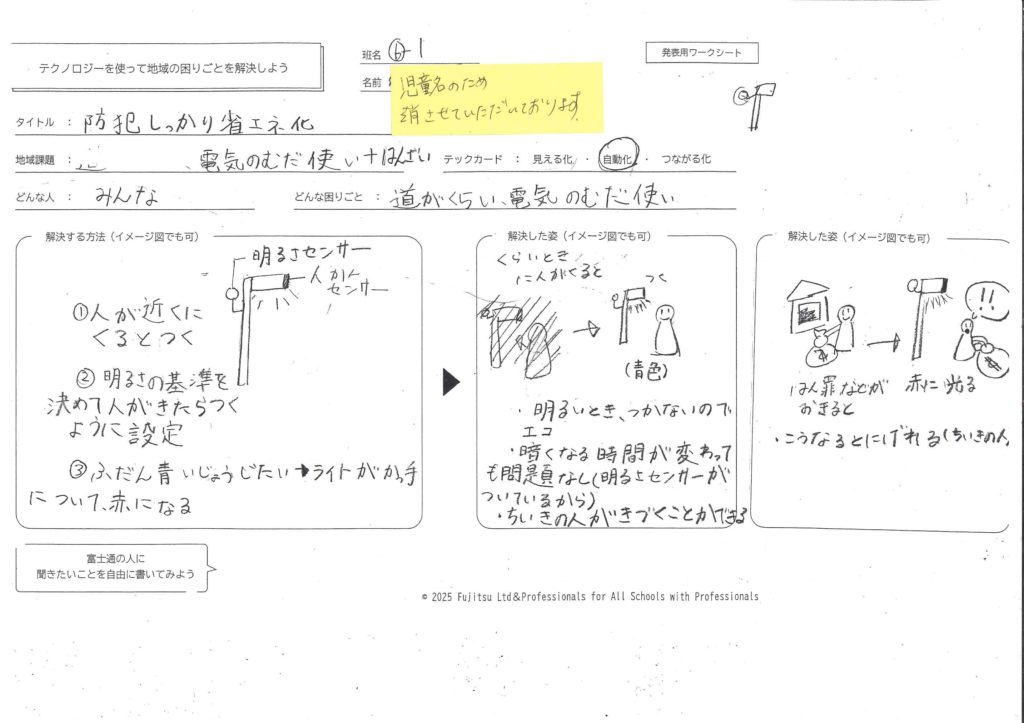 テクノロジーを使って地域の困りごとを解決しよう
班名 ⑥-1
発表用ワークシート
名前
児童名のため
消させていただいております。
タイトル : 防犯しっかり省エネ化
地域課題 : 、電気のむだ使い+はんざい
テックカード : 見える化 ・ 自動化 ・ つながる化
どんな人 : みんな
どんな困りごと : 道がくらい、電気のむだ使い
解決する方法（イメージ図でも可）
明るさセンサー
人かんセンサー
①人が近くに
くるとつく
②明るさの基準を
決めて人がきたらつく
ように設定
③ふだん青 いじょうじたい→ライトがかっ手
について、赤になる
解決した姿（イメージ図でも可）
くらいとき
に人がくると
つく
(青色)
・明るいとき、つかないので
エコ
・暗くなる時間が変わって
も問題なし(明るさセンサーが
ついているから)
・ちいきの人がきづくことができる
解決した姿（イメージ図でも可）
!!
$
$
はん罪などが
おきると
赤に光る
・こうなるとにげれる(ちいきの人
富士通の人に
聞きたいことを自由に書いてみよう
© 2025 Fujitsu Ltd&Professionals for All Schools with Professionals